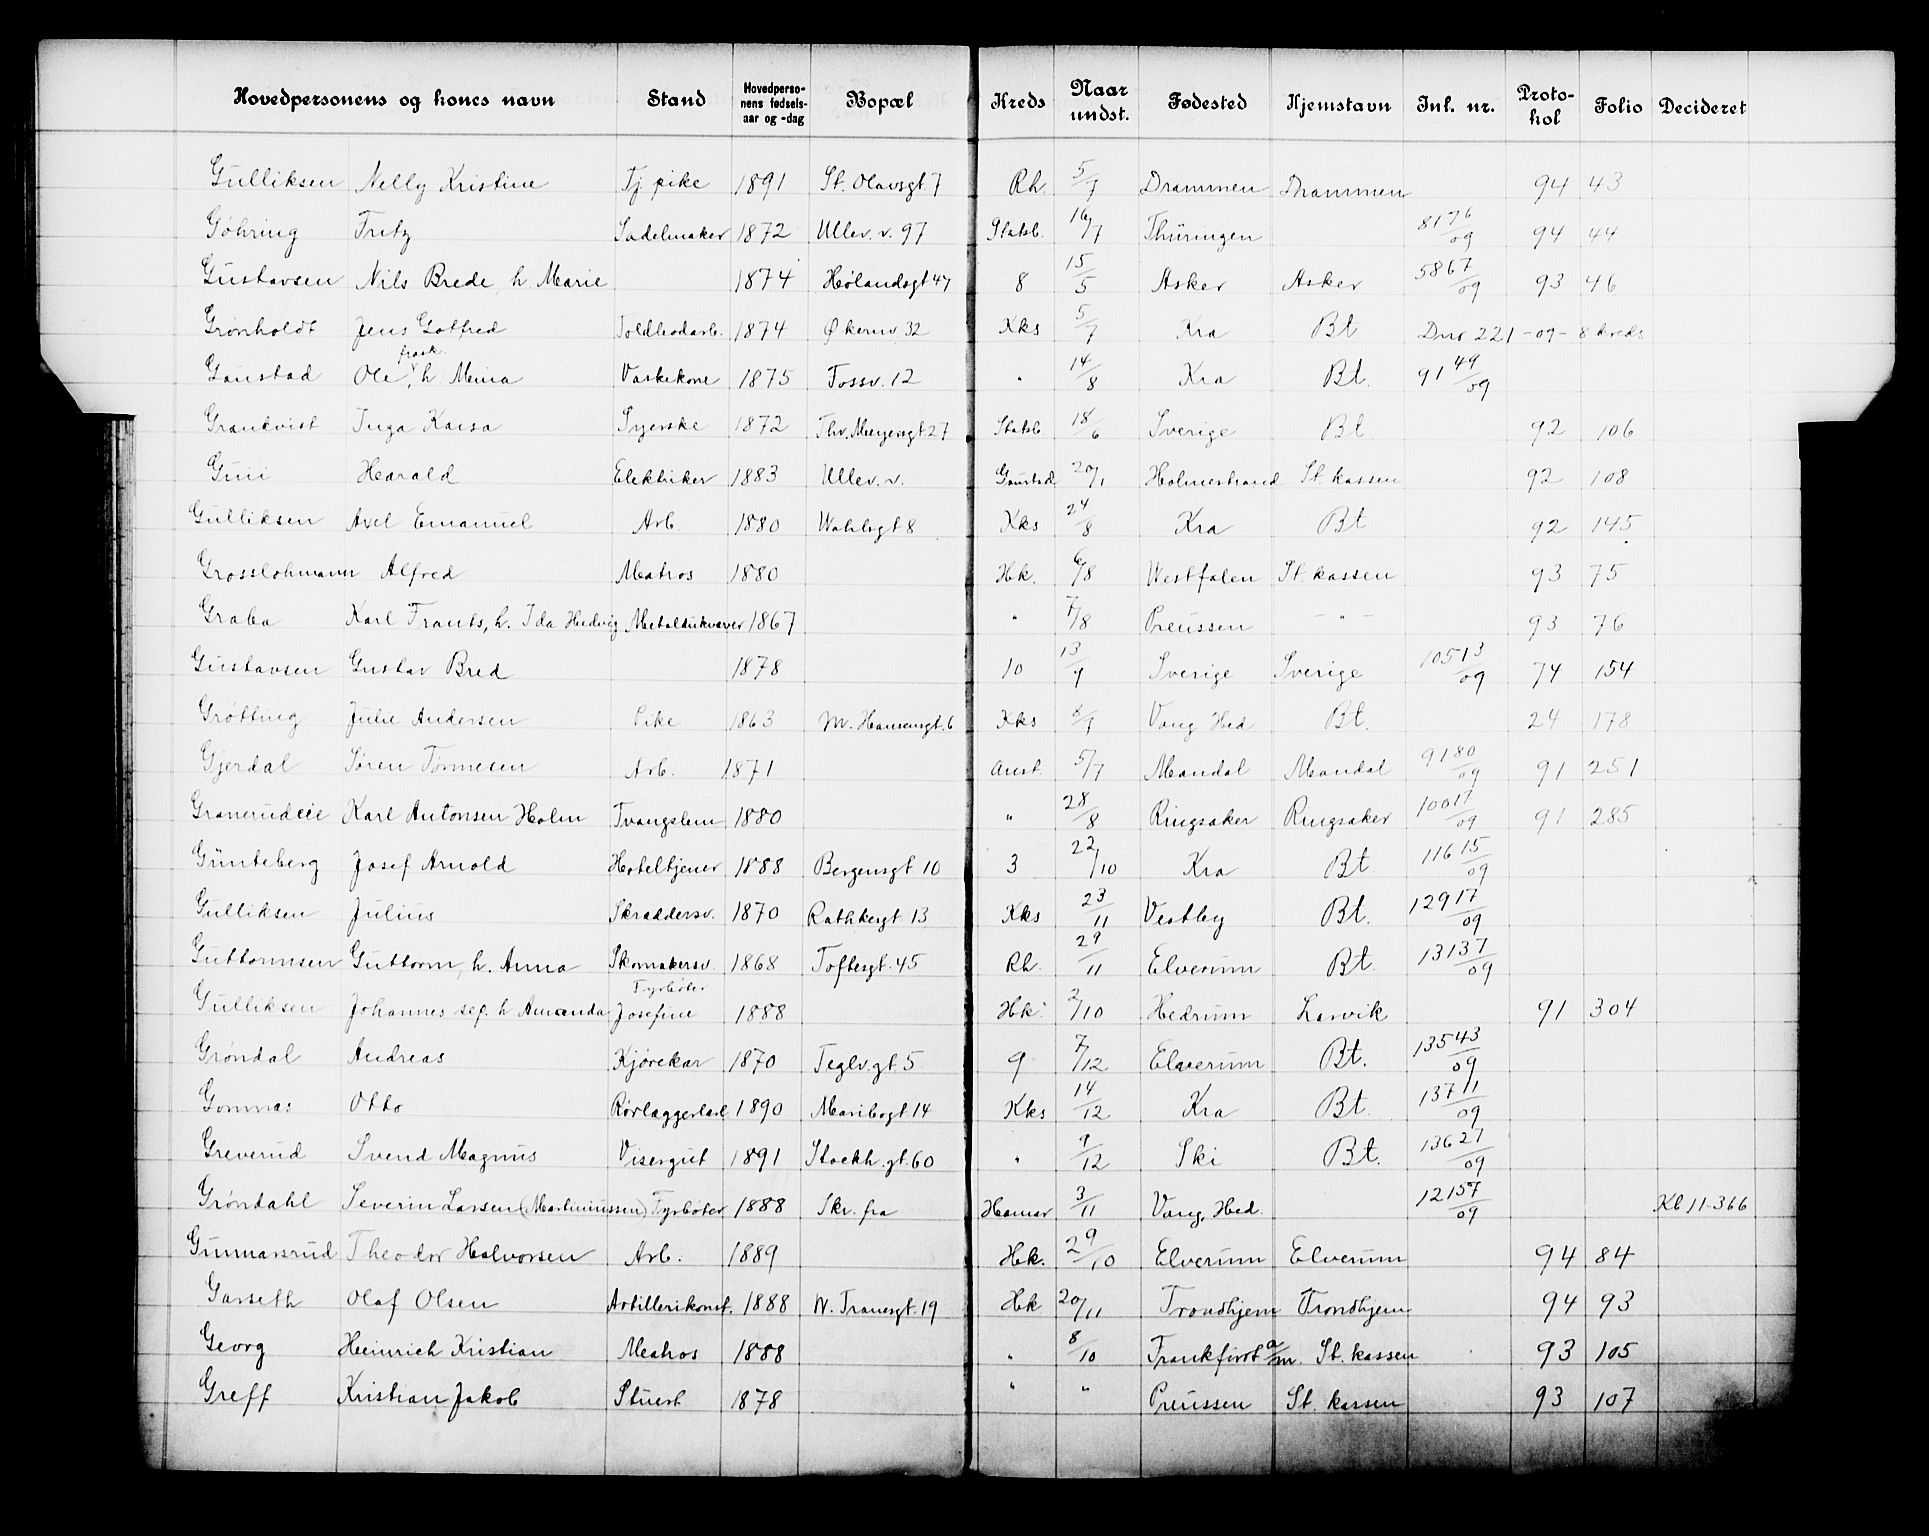 Hovedpersonens og kones navn Stand Hovedperso-nens fødsels-aar og -dag Bopæl Kreds Naar undst. Fødested Hjemstavn Inl. nr. Proto-kol Folio Decideret
Gulliksen Nelly Kristine Tj pike 1891 St. Olavsgt. 7 Rh. 5/7 Drammen Drammen 94 43
Göhring Fritz Sadelmaker 1872 Ullev. v. 97 Statsb. 16/7 Thüringen 8176/09 94 44
Gustavsen Nils Brede, h. Marie 1874 Hølandsgt 47 8 15/5 Asker Asker 5867/09 93 46
Grønholdt Jens Gotfred Toldbodarb. 1874 Økernv. 32 Kks 5/7 Kra Bt Dnr 221 - 09 - 8 kreds
Gaustad Ole, frask. h. Mina Vaskekone 1875 Fossv. 12 " 14/8 Kra Bt. 9149/09
Grankvist Inga Kaisa Syerske 1872 Thv. Meyersgt 27 Statsb 18/6 Sverige Bt 92 106
Guii Harald Elektriker 1883 Ullev. v. Gaustad 20/1 Holmestrand St. kassen 92 108
Gulliksen Axel Emanuel Arb. 1880 Wahlsgt 8 Kks 24/8 Kra Bt 92 145
Grosslohmann Alfred Matros 1880 Hk. 6/8 Westfalen St. kassen 93 75
Graba Karl Frants, h. Ida Hedvig 1867 " 7/8 Preussen - " - 93 76
Gustavsen Gustav Bred 1878 10 13/9 Sverige Sverige 10513/09 74 154
Grøtting Julie Andersen Pike 1863 M. Hansensgt. 6 Kks 8/9 Vang Hed Bt. 24 178
Gjerdal Søren Tønnesen Arb. 1871 Anst. 5/7 Mandal Mandal 9180/09 91 251
Granerudeie Karl Antonsen Holm Tvangslem 1880 " 28/8 Ringsaker Ringsaker 10017/09 91 285
Günteberg Josef Arnold Hoteltjener 1888 Bergensgt 10 3 22/10 Kra Bt 11615/09
Gulliksen Julius Skraddersv. 1870 Rathkesgt 13 Kks 23/11 Vestby Bt. 12917/09
Guttormsen Guttorm, h. Anna Skomakersv. 1868 Toftesgt. 45 Rh. 29/11 Elverum Bt. 13137/09
Gulliksen Johannes sep. h Amanda Josefine Fyrbøter 1888 Hk. 2/10 Hedrum Larvik 91 304
Grøndal Andreas Kjørekar 1870 Teglv. gt 5 9 7/12 Elverum Bt. 13543/09
Gommas Otto Rørlæggerlærl 1890 Maribogt. 14 Kks 14/12 Kra Bt. 13711/09
Greverud Svend Magnus Visergut 1891 Stockh. gt. 60 " 9/12 Ski Bt. 13627/09
Grøndahl Severin Larsen (Martiniussen) Fyrbøter 1888 Skr. fra Hamar 3/11 Vang, Hed. 12157/09 Kb 11-366
Gunnarsrud Theodor Halvorsen Arb. 1889 Hk. 29/10 Elverum Elverum 94 84
Garseth Olaf Olsen Artillerikonst. 1888 N. Tranesgt. 19 Hk 20/11 Trondhjem Trondhjem 94 93
Georg Heinrich Kristian Matros 1888 " 8/10 Frankfurt a/m. St. kassen 93 105
Greff Kristian Jakob Stuert 1878 " " Preussen St. kassen 93 107